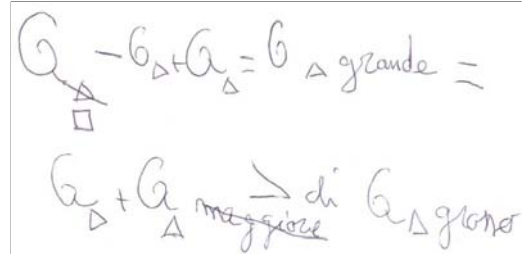 G△□ - G△ + G△ = G △ grande =
G△ + G△ maggiore > di G△ grosso